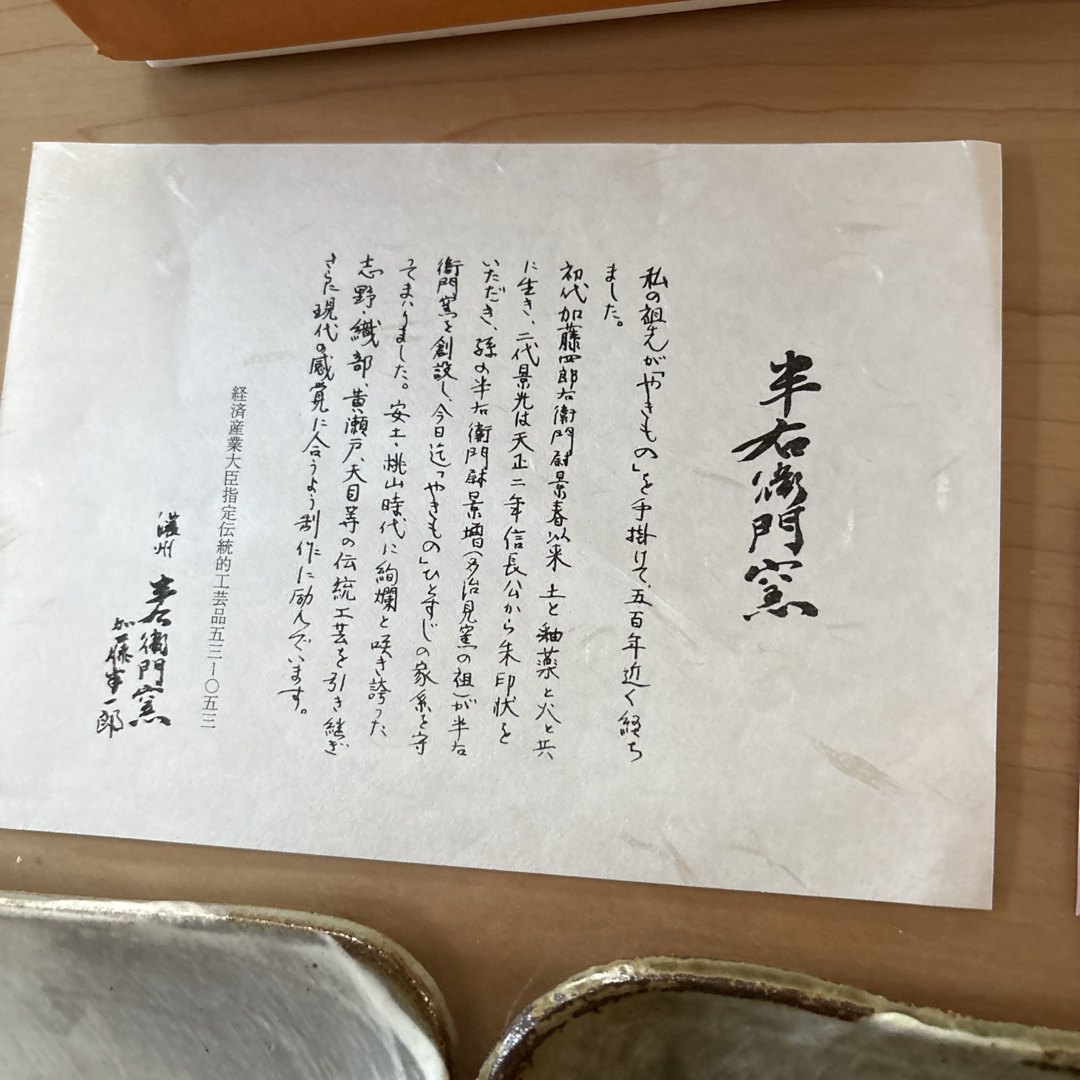 半右衛門窯
私の祖先が「やきもの」を手掛けて、五百年近く経ち
ました。
初代加藤四郎右衛門尉景春以来 土と釉薬と火と共
に生き、二代景光は天正二年信長公から朱印状を
いただき、孫の半右衛門尉景増(多治見窯の祖)が半右
衛門窯を創設し、今日迄「やきもの」ひとすじの家系を守
てまいりました。安土・桃山時代に絢爛と咲き誇った
志野・織部、黄瀬戸、天目等の伝統工芸を引き継ぎ
さらに現代の感覚に合うよう制作に励んでいます。
経済産業大臣指定伝統的工芸品五三一〇五三
濃州 半右衛門窯
加藤 一郎